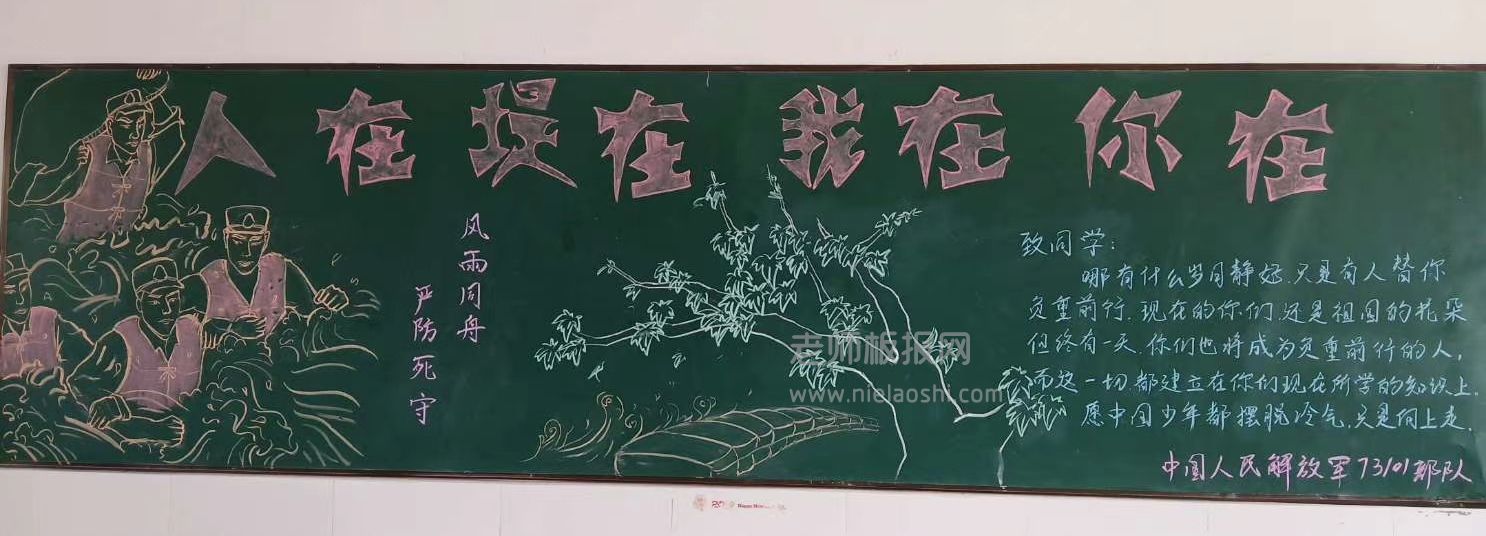 人在堤在我在你在
风雨同舟
严防死守
致同学:
哪有什么岁月静好,只是有人替你
负重前行.现在的你们,还是祖国的花朵
但终有一天,你们也将成为负重前行的人,
而这一切,都建立在你们现在所学的知识上.
愿中国少年都摆脱冷气,只是向上走.
中国人民解放军73101部队
老师板报网
www.nielaoshi.com